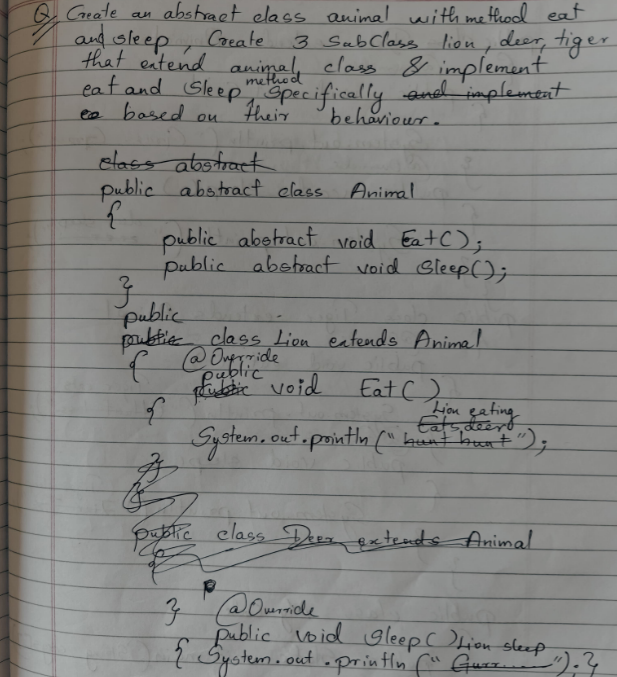 Q. Create an abstract class animal with method eat
and sleep, Create 3 SubClass lion, deer, tiger
that extend animal class & implement
eat and Sleep method Specifically and implement
based on their behaviour.
class abstract
public abstract class Animal
{
public abstract void Eat();
public abstract void Sleep();
}
public
public class Lion extends Animal
{ @Override
public
public void Eat()
{ Lion eating
Eats deer
System.out.println("hunt hunt");
}
}
public class Deer extends Animal
{
} @Override
public void Sleep() Lion sleep
{ System.out.println(" "); }